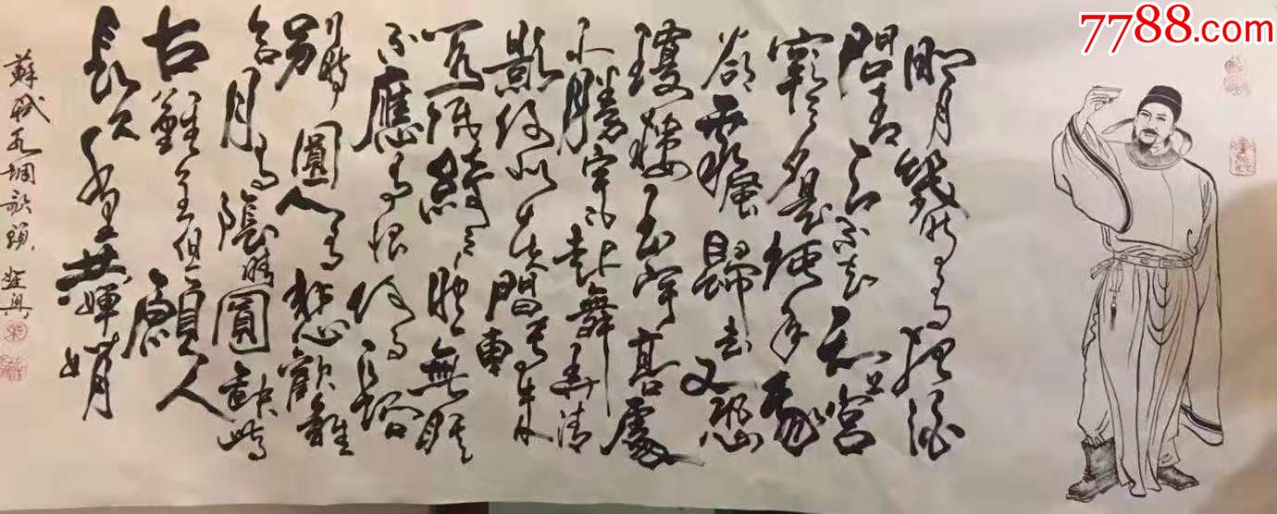 7788.com
明月幾時有把酒
問青天不知天上宮
闕今夕是何年我
欲乘風歸去又恐
瓊樓玉宇高處
不勝寒起舞弄清
影何似在人間轉朱
閣低綺戶照無眠
不應有恨何事長向
別時圓人有悲歡離
合月有陰晴圓缺此事
古難全但願人
長久千里共嬋娟
蘇軾水調歌頭